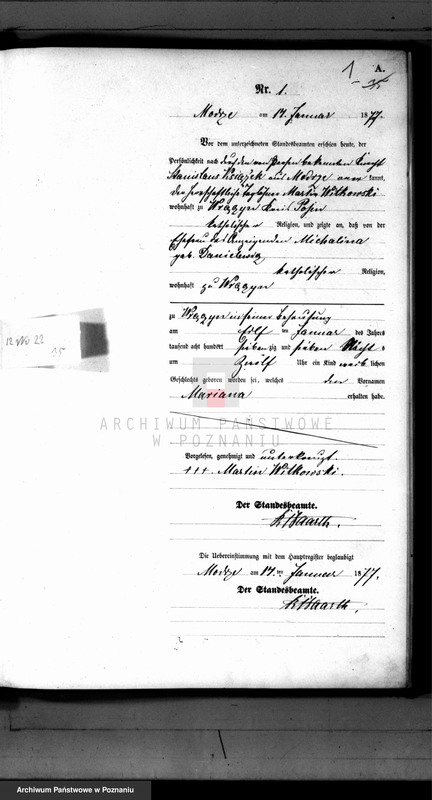 1 A.
Nr. 1.
Modrze am 14 Januar 1877.
Vor dem unterzeichneten Standesbeamten erschien heute, der
Persönlichkeit nach durch den von Person bekannten Knecht
Stanislaus Ksiązek aus Modrze aner kannt,
der herrschaftliche Tagelöhner Martin Witkowski
wohnhaft zu Wronczyn Kreis Posen
katholischer Religion, und zeigte an, daß von der
Ehefrau des Anzeigenden Michalina
geb. Danielewicz
katholischer Religion,
wohnhaft zu
zu in seiner Behausung
am elf ten Januar des Jahres
tausend acht hundert sieben zig und sieben Nachts
um Zwölf Uhr ein Kind weib lichen
Geschlechts geboren worden sei, welches den Vornamen
Mariana erhalten habe.
Vorgelesen, genehmigt und unterkreuzt.
+++. Martin Witkowski.
Der Standesbeamte.
Die Uebereinstimmung mit dem Hauptregister beglaubigt
Modrze am 14 ten Januar 1877.
Der Standesbeamte.
35
ARCHIWUM PAŃSTWOWE
W POZNANIU
Archiwum Państwowe w Poznaniu